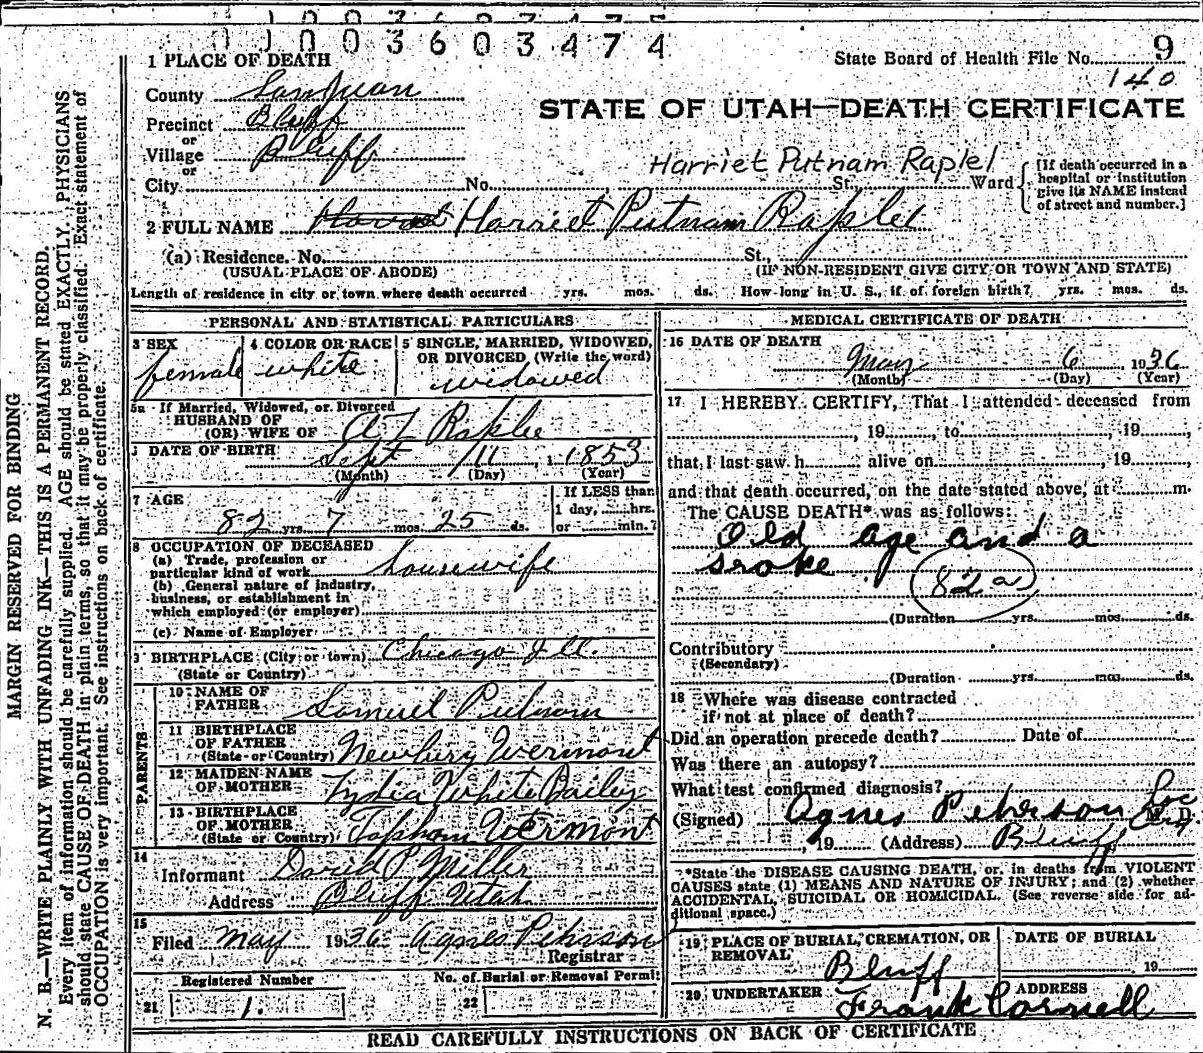 0100360 3474
1 PLACE OF DEATH
State Board of Health File No. 9
140
County San Juan
STATE OF UTAH—DEATH CERTIFICATE
Precinct Bluff
or
Village Bluff
or
Harriet Putnam Raplel
City No. St. Ward
[If death occurred in a hospital or institution give its NAME instead of street and number.]
2 FULL NAME Harriet Putnam Raplee
(a) Residence. No. St.,
(USUAL PLACE OF ABODE) (IF NON-RESIDENT GIVE CITY OR TOWN AND STATE)
Length of residence in city or town where death occurred yrs. mos. ds. How long in U. S., if of foreign birth? yrs. mos. ds.
PERSONAL AND STATISTICAL PARTICULARS
3 SEX
female
4 COLOR OR RACE
white
5 SINGLE, MARRIED, WIDOWED,
OR DIVORCED (Write the word)
widowed
5a If Married, Widowed, or Divorced
HUSBAND OF
(OR) WIFE OF A L Raplee
DATE OF BIRTH Sept 11, 1853
(Month) (Day) (Year)
7 AGE
82 yrs. 7 mos. 25 ds.
If LESS than
1 day, hrs.
or min.?
8 OCCUPATION OF DECEASED
(a) Trade, profession or
particular kind of work housewife
(b) General nature of industry,
business, or establishment in
which employed (or employer)
(c) Name of Employer
9 BIRTHPLACE (City or town) Chicago Ill.
(State or Country)
PARENTS
10 NAME OF
FATHER Samuel Putnam
11 BIRTHPLACE
OF FATHER
(State or Country) Newbury Vermont
12 MAIDEN NAME
OF MOTHER Lydia White Bailey
13 BIRTHPLACE
OF MOTHER
(State or Country) Topham Vermont
14
Informant David P. Miller
Address Bluff Utah
15
Filed May 1936 Agnes Pehrson
Registrar
Registered Number
21 1.
No. of Burial or Removal Permit
22
MEDICAL CERTIFICATE OF DEATH
16 DATE OF DEATH
May 6 1936
(Month) (Day) (Year)
17 I HEREBY CERTIFY, That I attended deceased from
, 19 , to , 19 ,
that I last saw h alive on , 19 ,
and that death occurred, on the date stated above, at m.
The CAUSE DEATH* was as follows:
Old age and a
sroke 82a
(Duration yrs. mos. ds.
Contributory
(Secondary)
(Duration yrs. mos. ds.
18 Where was disease contracted
if not at place of death?
Did an operation precede death? Date of
Was there an autopsy?
What test confirmed diagnosis?
(Signed) Agnes Pehrson Loc M. D.
, 19 (Address) Bluff
*State the DISEASE CAUSING DEATH, or, in deaths from VIOLENT
CAUSES state (1) MEANS AND NATURE OF INJURY; and (2) whether
ACCIDENTAL, SUICIDAL OR HOMICIDAL. (See reverse side for ad-
ditional space.)
19 PLACE OF BURIAL, CREMATION, OR
REMOVAL
Bluff
DATE OF BURIAL
19
20 UNDERTAKER
Frank Cornell
ADDRESS
READ CAREFULLY INSTRUCTIONS ON BACK OF CERTIFICATE
MARGIN RESERVED FOR BINDING
N. B.—WRITE PLAINLY WITH UNFADING INK—THIS IS A PERMANENT RECORD.
Every item of information should be carefully supplied. AGE should be stated EXACTLY. PHYSICIANS
should state CAUSE OF DEATH in plain terms, so that it may be properly classified. Exact statement of
OCCUPATION is very important. See instructions on back of certificate.